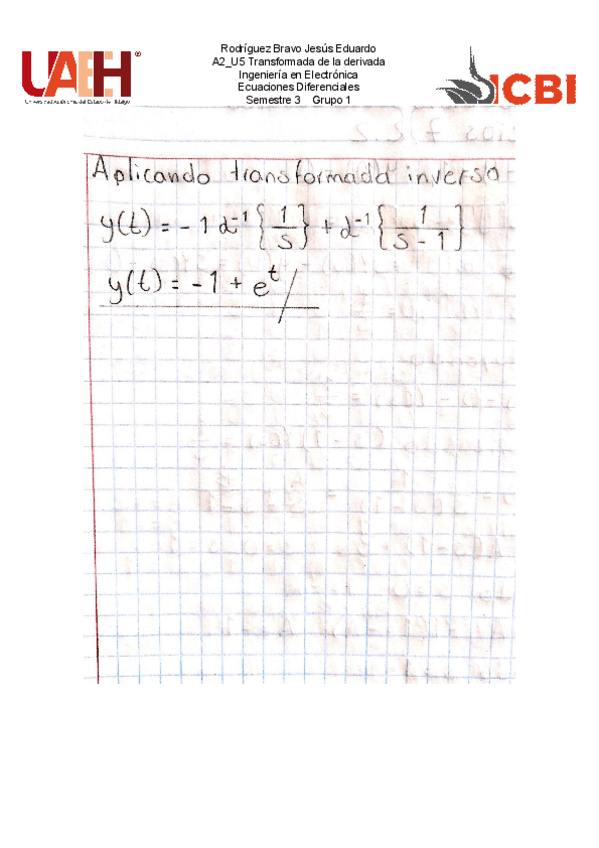 Rodríguez Bravo Jesús Eduardo
A2_U5 Transformada de la derivada
Ingeniería en Electrónica
Ecuaciones Diferenciales
Semestre 3 Grupo 1
UAEH
Universidad Autónoma del Estado de Hidalgo
ICBI
Aplicando transformada inversa
y(t) = -1 ℒ⁻¹{1/s} + ℒ⁻¹{1/(s-1)}
y(t) = -1 + e^t